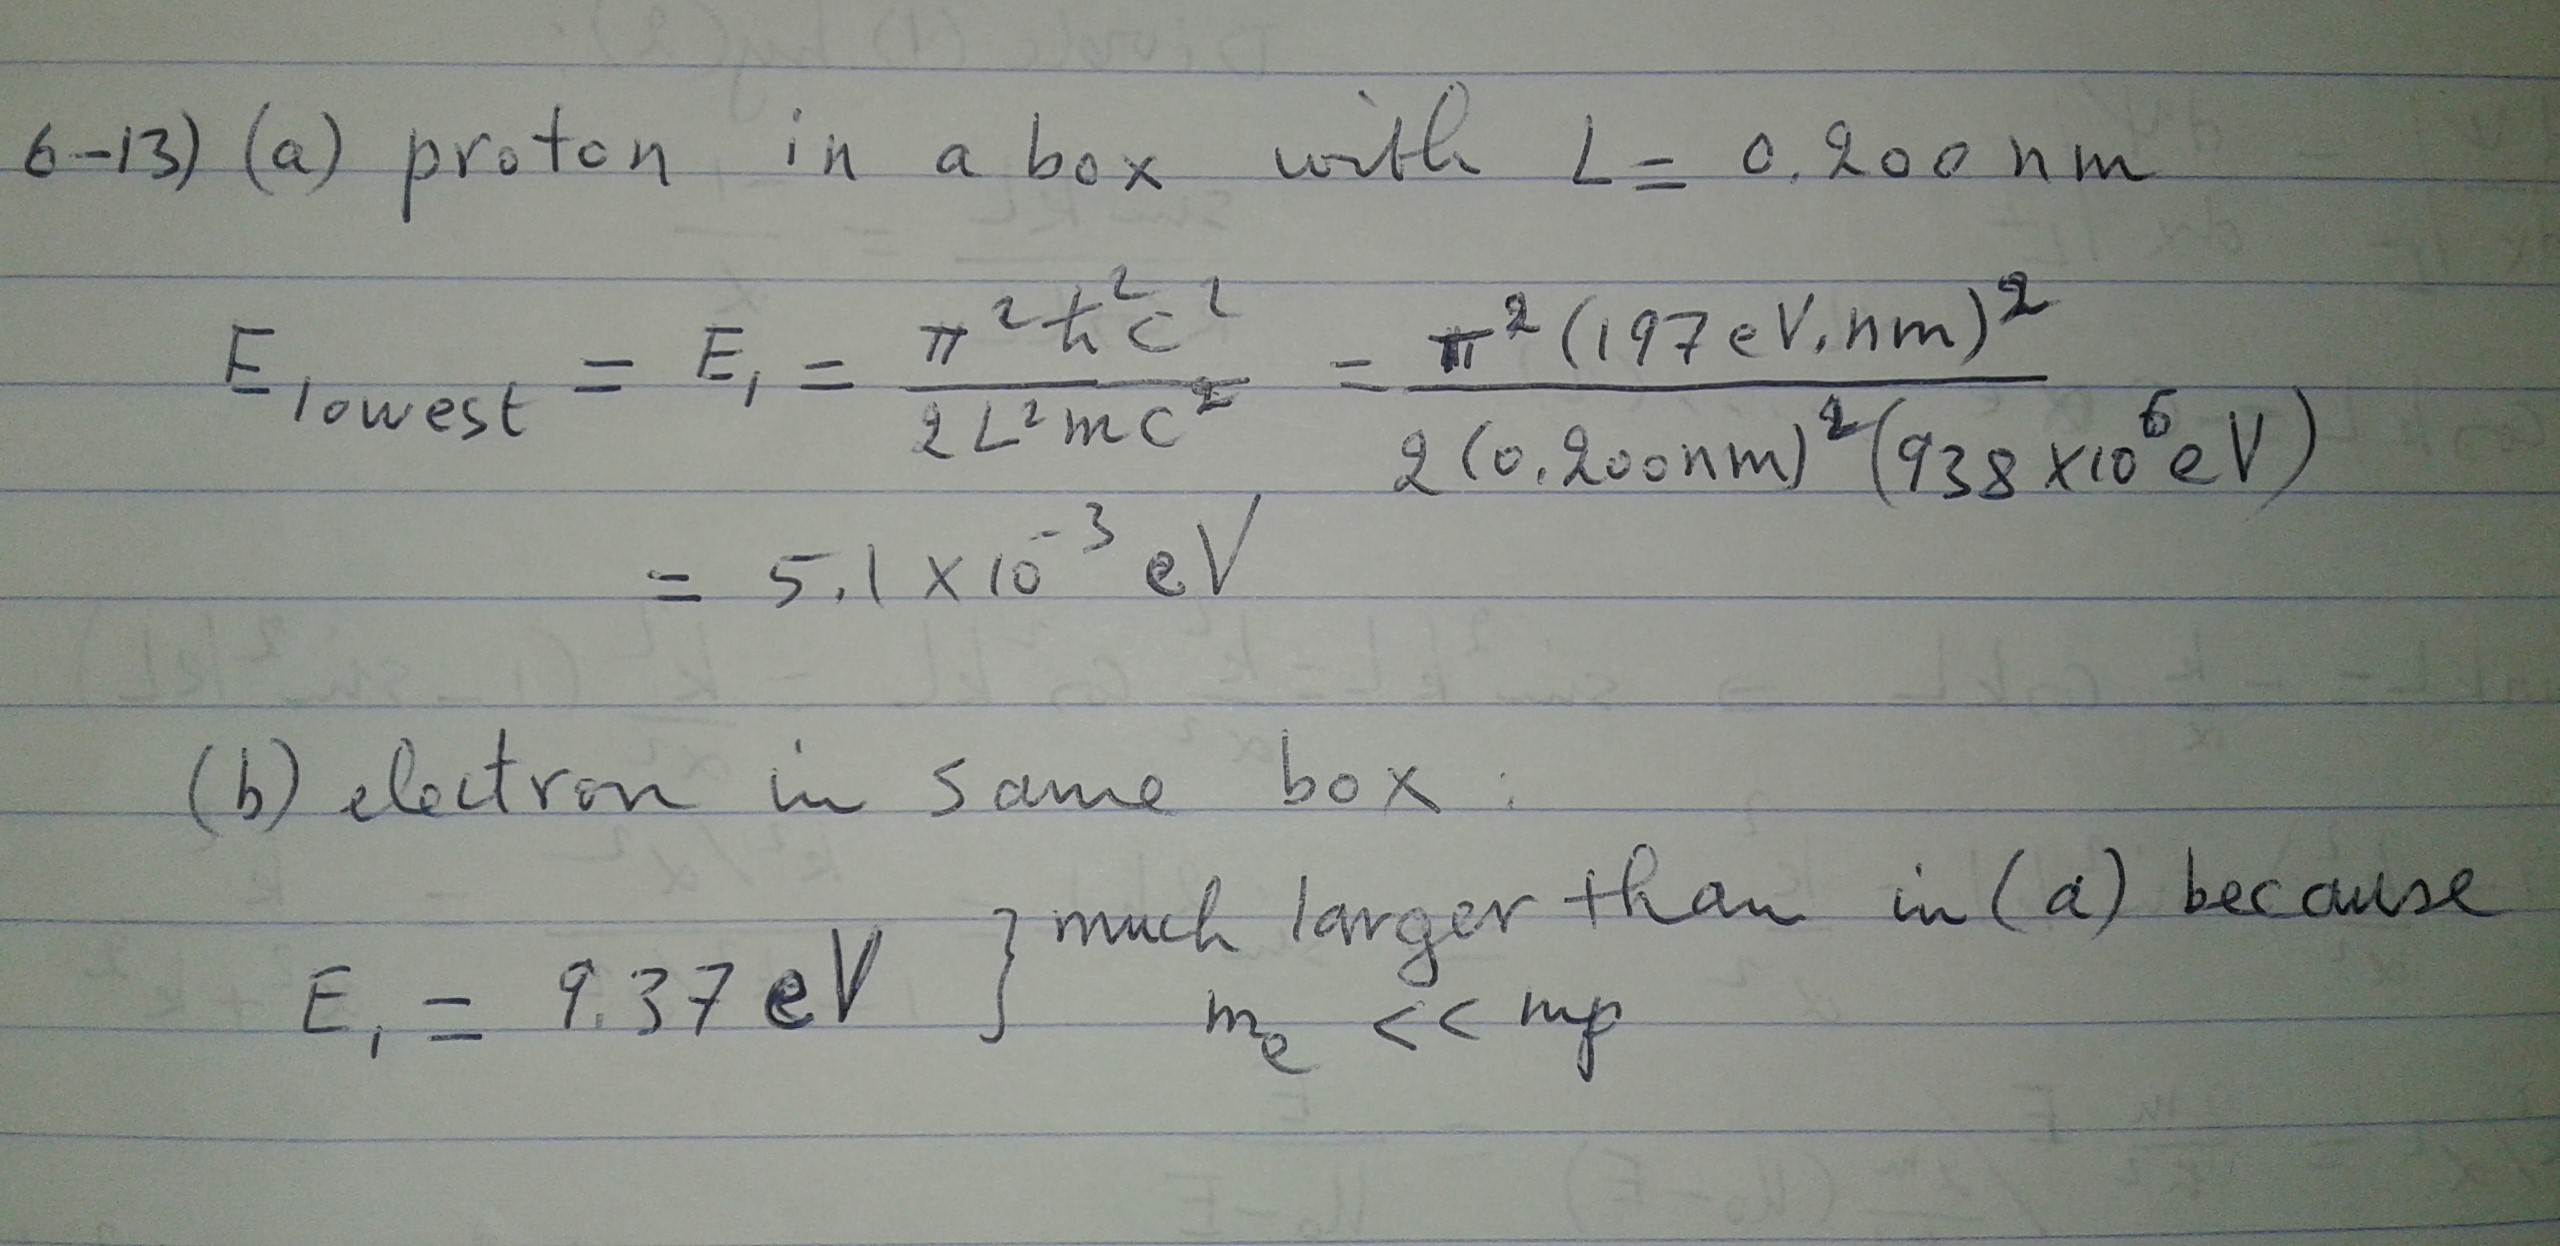 6-13) (a) proton in a box with L = 0.200 nm
E lowest = E₁ = π²ħ²c² / 2L²mc² = π²(197 eV.nm)² / 2(0.200nm)²(938 ×10⁶ eV)
= 5.1 × 10⁻³ eV
(b) electron in same box :
E₁ = 9.37 eV } much larger than in (a) because
mₑ << mp